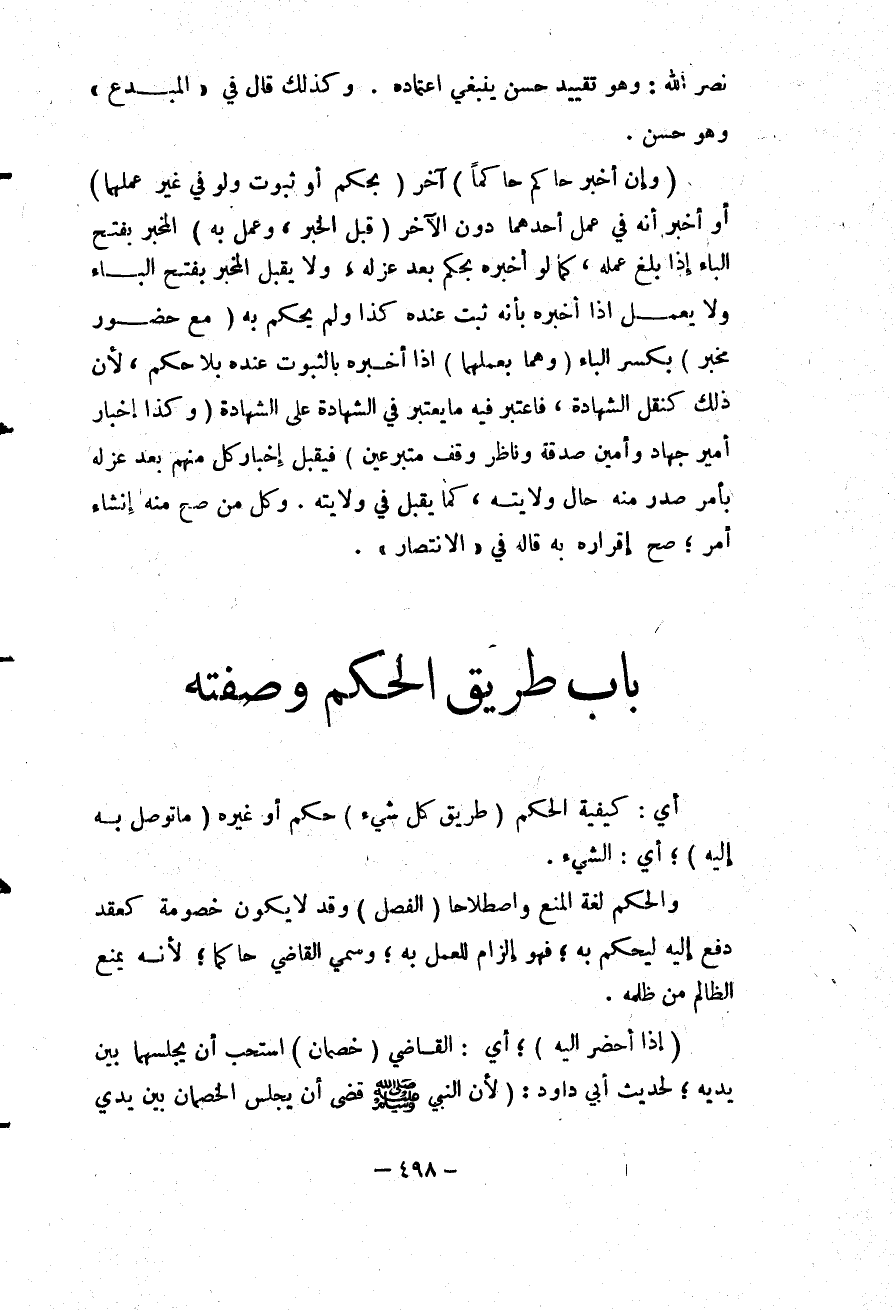 نصر الله : وهو تقييد حسن ينبغي اعتماده . وكذلك قال في « المبـــدع »
وهو حسن .
( وإن أخبر حاكم حاكماً ) آخر ( بحكم أو ثبوت ولو في غير عملهما )
أو أخبر أنه في عمل أحدهما دون الآخر ( قبل الخبر ، وعمل به ) المخبر بفتح
الباء إذا بلغ عمله ، كما لو أخبره بحكم بعد عزله ، ولا يقبل المخبر بفتح البـــاء
ولا يعمـــل اذا اخبره بأنه ثبت عنده كذا ولم يحكم به ( مع حضـــور
مخبر ) بكسر الباء ( وهما بعملهما ) اذا أخـبره بالثبوت عنده بلا حكم ، لأن
ذلك كنقل الشهادة ، فاعتبر فيه مايعتبر في الشهادة على الشهادة ( وكذا إخبار
أمير جهاد وأمين صدقة وناظر وقف متبرعين ) فيقبل إخباركل منهم بعد عزله
بأمر صدر منه حال ولايتــه ، كما يقبل في ولايته . وكل من صح منه إنشاء
أمر ؛ صح إقراره به قاله في « الانتصار » .
باب طريق الحكم وصفته
أي : كيفية الحكم ( طريق كل شيء ) حكم أو غيره ( ماتوصل بــه
إليه ) ؛ أي : الشيء .
والحكم لغة المنع واصطلاحا ( الفصل ) وقد لايكون خصومة كعقد
دفع إليه ليحكم به ؛ فهو إلزام للعمل به ؛ وسمي القاضي حاكما ؛ لأنــه يمنع
الظالم من ظلمه .
( إذا أحضر اليه ) ؛ أي : القــاضي ( خصمان ) استحب أن يجلسهما بين
يديه ؛ لحديث أبي داود : ( لأن النبي ﷺ قضى أن يجلس الخصمان بين يدي
– ٤٩٨ –